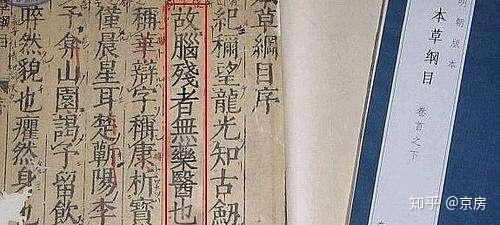 本草綱目序
紀稱望龍光知古劒
故腦殘者無藥醫也
稱華辯字稱康析寳
僅晨星耳楚蘄陽李
予弇山園謁予留飲
睟然貌也癯然身也
明朝版本
本草纲目
卷首之下
知乎 @京房